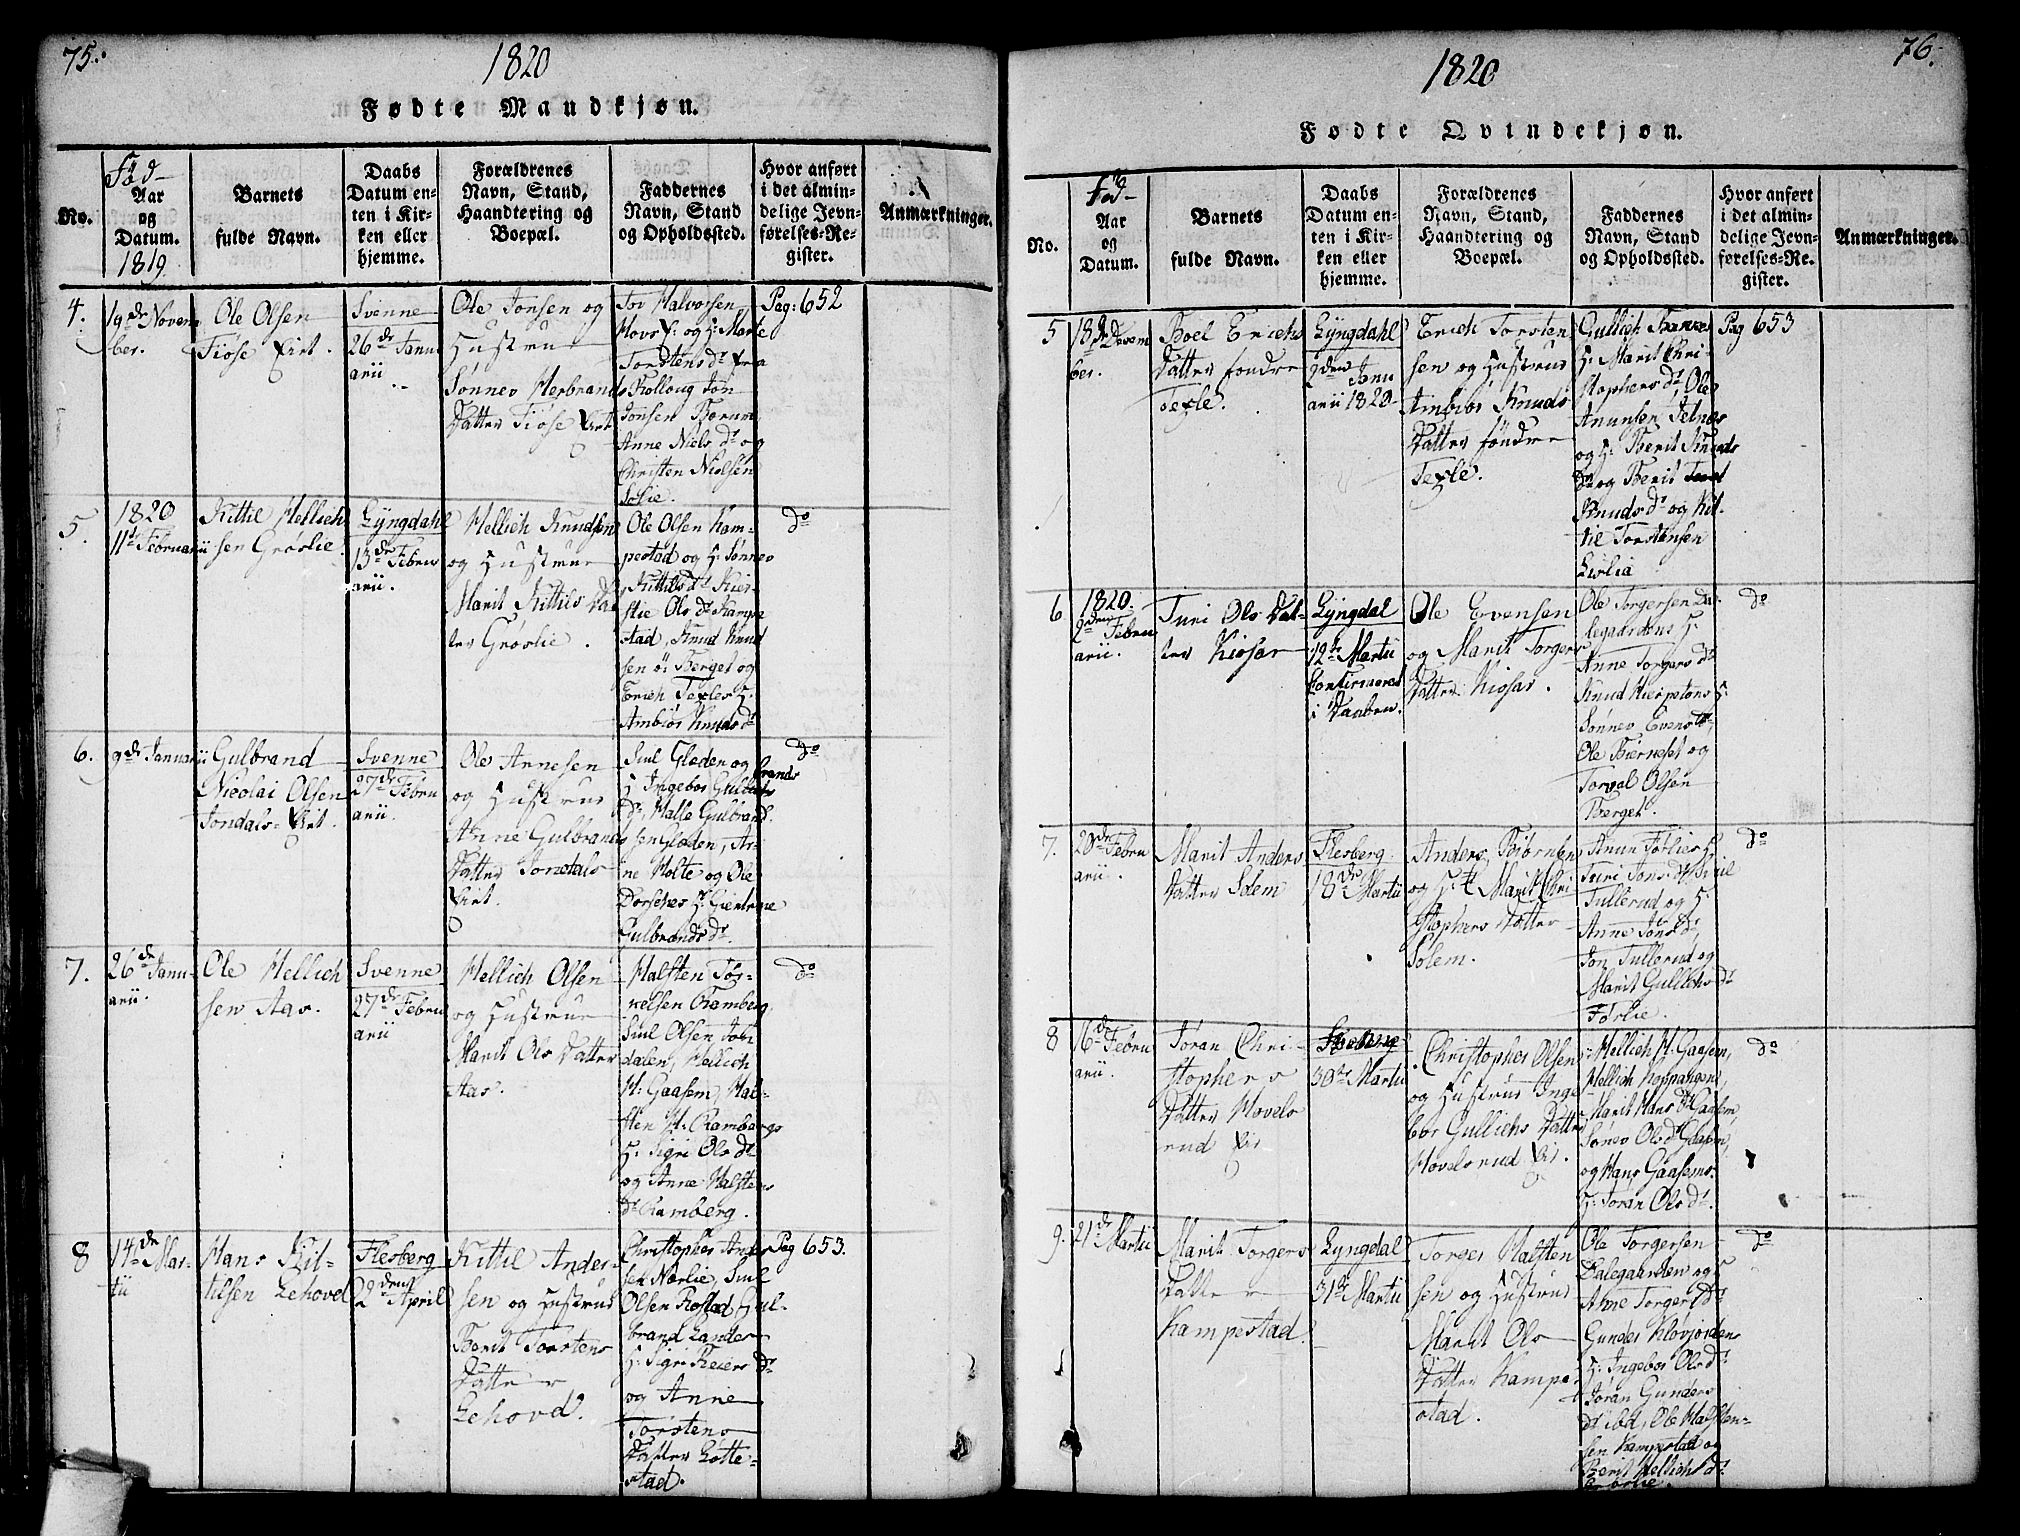 75.
1820
Fødte Mandkjøn.
No.
Fød-
Aar
og
Datum.
1819
Barnets
fulde Navn.
Daabs
Datum en-
ten i Kir-
ken eller
hjemme.
Forældrenes
Navn, Stand,
Haandtering og
Boepæl.
Faddernes
Navn, Stand
og Opholdssted.
Hvor anført
i det almin-
delige Jevn-
førelses-Re-
gister.
Anmærkninger.
4.
19de Novem
ber.
Ole Olsen
Fiose Eiet.
Svenne
26de Janu
arii
Ole Jonsen og
Hustrue
Sønnev Herbrands
Datter Fiose Eiet
Tov Halvorsen
Hovs E: og H: Marte
Torstens dr fra
Kolloug Jon
Jonsen Borum
Anne Niels dr og
Christen Nielsen
Solie.
Pag: 652
5.
1820
11te Februarii
Kittil Hellich
sen Grøslie.
Lyngdahl
13de Febru
arii
Hellich Knudsen
og Hustrue
Marit Kittils Dat
ter Grøslie.
Ole Olsen Kam-
pestad og H: Sønnev
Kittils dr Kier-
stie Ols dr Kampe
stad, Knud Knud
sen ø: Berget og
Erich Texles H:
Ambiør Knuds dr
do
6.
9de Januarii
Gulbrand
Nicolai Olsen
Jondals- Eiet.
Svenne
27de Febru
arii.
Ole Arnesen
og Hustrue
Anne Gulbrands
Datter Jondals
Eiet.
Juul Gladen og
H Ingebor Gulbrands
dr, Halle Gulbrand
sen Gladen, Ar-
ne Holte og Ole
Dorsches H: Giertrue
Gulbrands dr.
do
7.
26de Janu-
arii.
Ole Hellich
sen Aas.
Svenne
27de Febru
arii
Hellich Olsen
og Hustrue
Marit Ols Datter
Aas.
Halsten Tor-
kelsen Ramberg
Juul Olsen Jon
dalen, Hellich
H: Gaasem, Hal-
sten H: Rambergs
H: Sigri Ols dr
og Anne Halstens
dr Ramberg.
do
8
14de Mar-
tii
Hans Kit-
tilsen Lehovd
Flesberg
2den April
Kittil Anders-
sen og Hustrue
Berit Torstens
Datter
Lehovd.
Christopher Anders
sen Nørlie, Juul
Olsen Rostad, Gul-
brand Landes
H: Sigri Reiers dr
og Anne
Torstens
Datter Lofte-
stad.
Pag 653.
76.
1820
Fødte Qvindekjøn.
No.
Fød-
Aar
og
Datum.
Barnets
fulde Navn.
Daabs
Datum en-
ten i Kir-
ken eller
hjemme.
Forældrenes
Navn, Stand,
Haandtering og
Boepæl.
Faddernes
Navn, Stand
og Opholdssted.
Hvor anført
i det almin-
delige Jevn-
førelses-Re-
gister.
Anmærkninger.
5
18de Decem
ber.
Boel Erichs
Datter søndre
Texle.
Lyngdahl
9den Janu
arii 1820
Erich Torsten
sen og Hustrue
Ambiør Knuds
Datter søndre
Texle.
Gullich
H: Marit Chri-
stophers dr, Ole
Amunsen
og H: Berit Knuds
dr og Berit
Knuds dr og Kit-
til Torstensen
Lislia
Pag 653
6
1820.
2den Febru
arii.
Turi Ols Dat-
ter Kiosar
Lyngdal
12te Martii
Confirmeret
i Daaben.
Ole Evensen
og Marit Torgers
Datter Kiosar.
Ole Torgersen Da-
legaardens H:
Anne Torgers dr
Knud Hierpetøns H:
Sønnev Evens dr,
Ole Bierneset og
Torval Olsen
Berget.
do
7.
20de Febru
arii.
Marit Anders
Datter Solem
Flesberg
18de Martii
Anders Biørnsen
og H: Marit Chri
stophers Datter
Solem.
Amun Førlies H:
Turi Jons dr
Tullerud og H:
Anne Jons dr,
Jon Tullerud og
Marit Gullichs dr
Førlie.
do
8
16de Febru
arii.
Jøran Chri-
stophers
Datter Hovels
rud Eie
30te Martii
Christopher Olsen
og Hustrue Inge
bor Gullichs Datter
Hovelsrud Ei.
Hellich H: Gaasem,
Hellich Koppangen,
Marit Hans dr Gaasem,
Sønev Ols dr Gaasem,
og Hans Gaasems
H: Jøran Ols dr.
do
9.
21de Martii
Marit Torgers
Datter
Kampestad.
Lyngdal
31te Martii
Torger Halsten
sen og Hustrue
Marit Ols
Datter Kampe-
stad.
Ole Torgersen
Dalegaarden og H
Anne Torgers dr
Gunder Kløvjorden
H: Ingebor Ols dr
Jøran Gunders
dr ibd, Ole Halsten-
sen Kampestad og
Berit Hellichs dr
Grøslie.
do